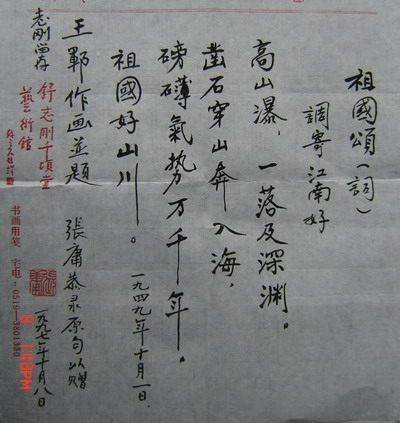 祖國頌（詞）
調寄江南好
高山瀑，一落及深淵。
鑿石穿山奔入海，
磅礴氣势万千年。
祖國好山川。
一九四九年十月一日.
王鄲作画並題
張庸恭录原句以贈
志刚留存
一九九七年十月八日
舒志刚千頃堂
藝術館
书画用笺 宅电：0519-3801330
8 1:48PM